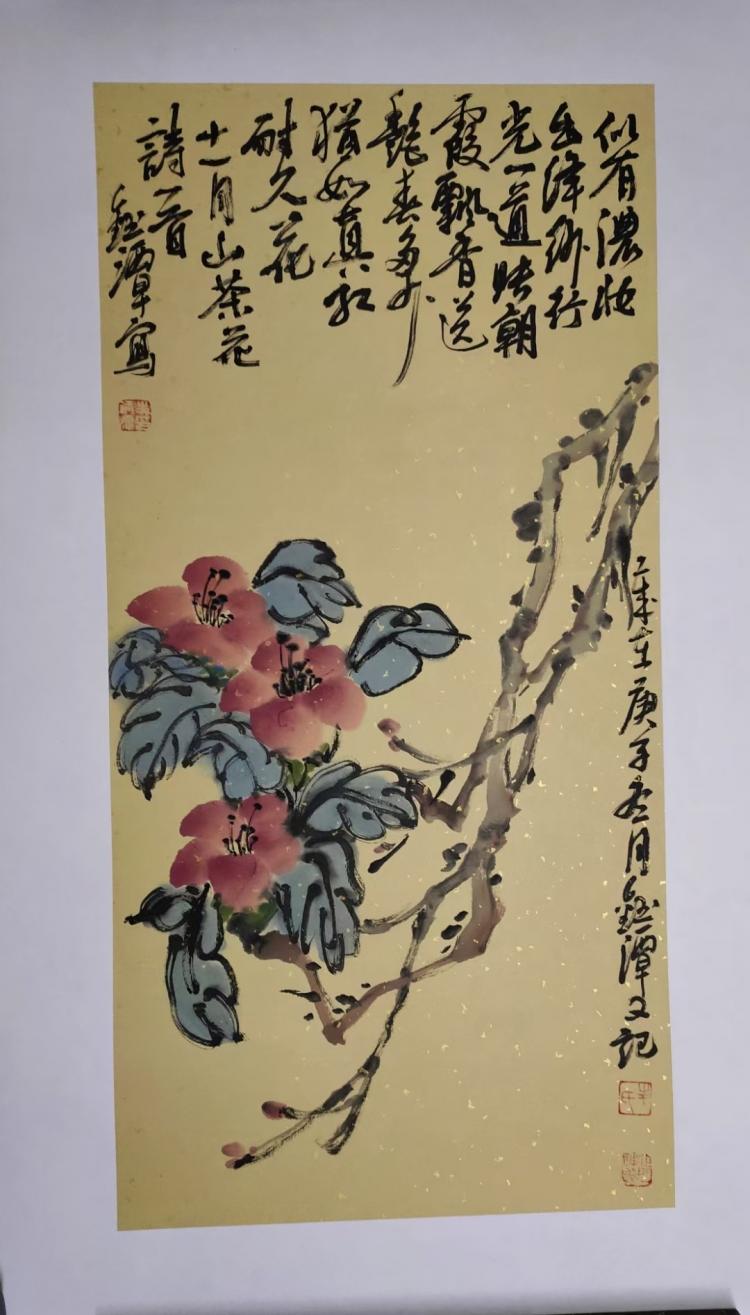 似有濃妝
出絳紗行
光一道映朝
霞飄香送
艷春多少
猶如真紅
耐久花
十一月山茶花
詩一首
鈺潭寫
歲在庚子冬月鈺潭又記